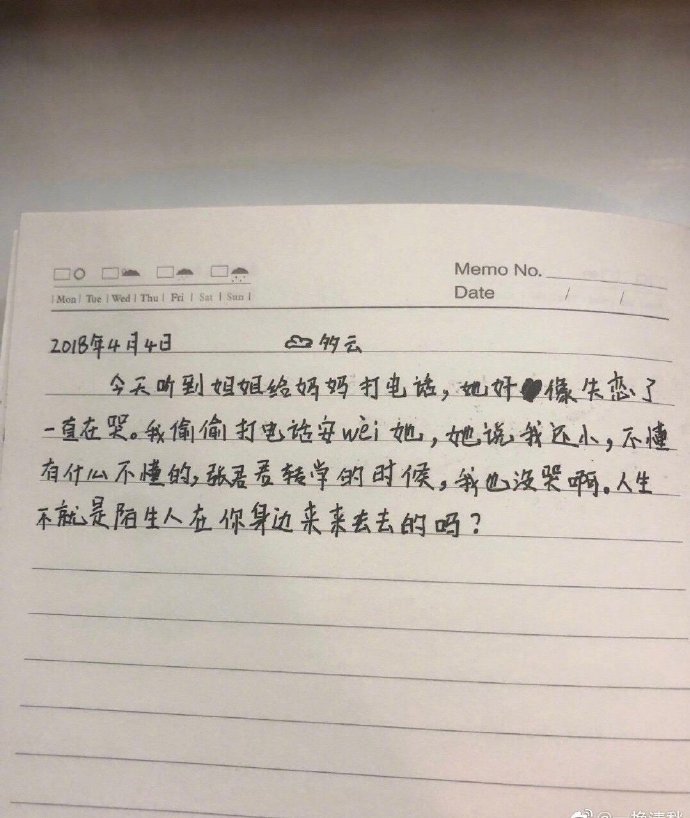 Memo No.
Date / /
Mon Tue Wed Thu Fri Sat Sun
2018年4月4日 多云
今天听到姐姐给妈妈打电话，她好像失恋了
一直在哭。我偷偷打电话安wèi她，她说我还小，不懂
有什么不懂的，张君君转学的时候，我也没哭啊。人生
不就是陌生人在你身边来来去去的吗？